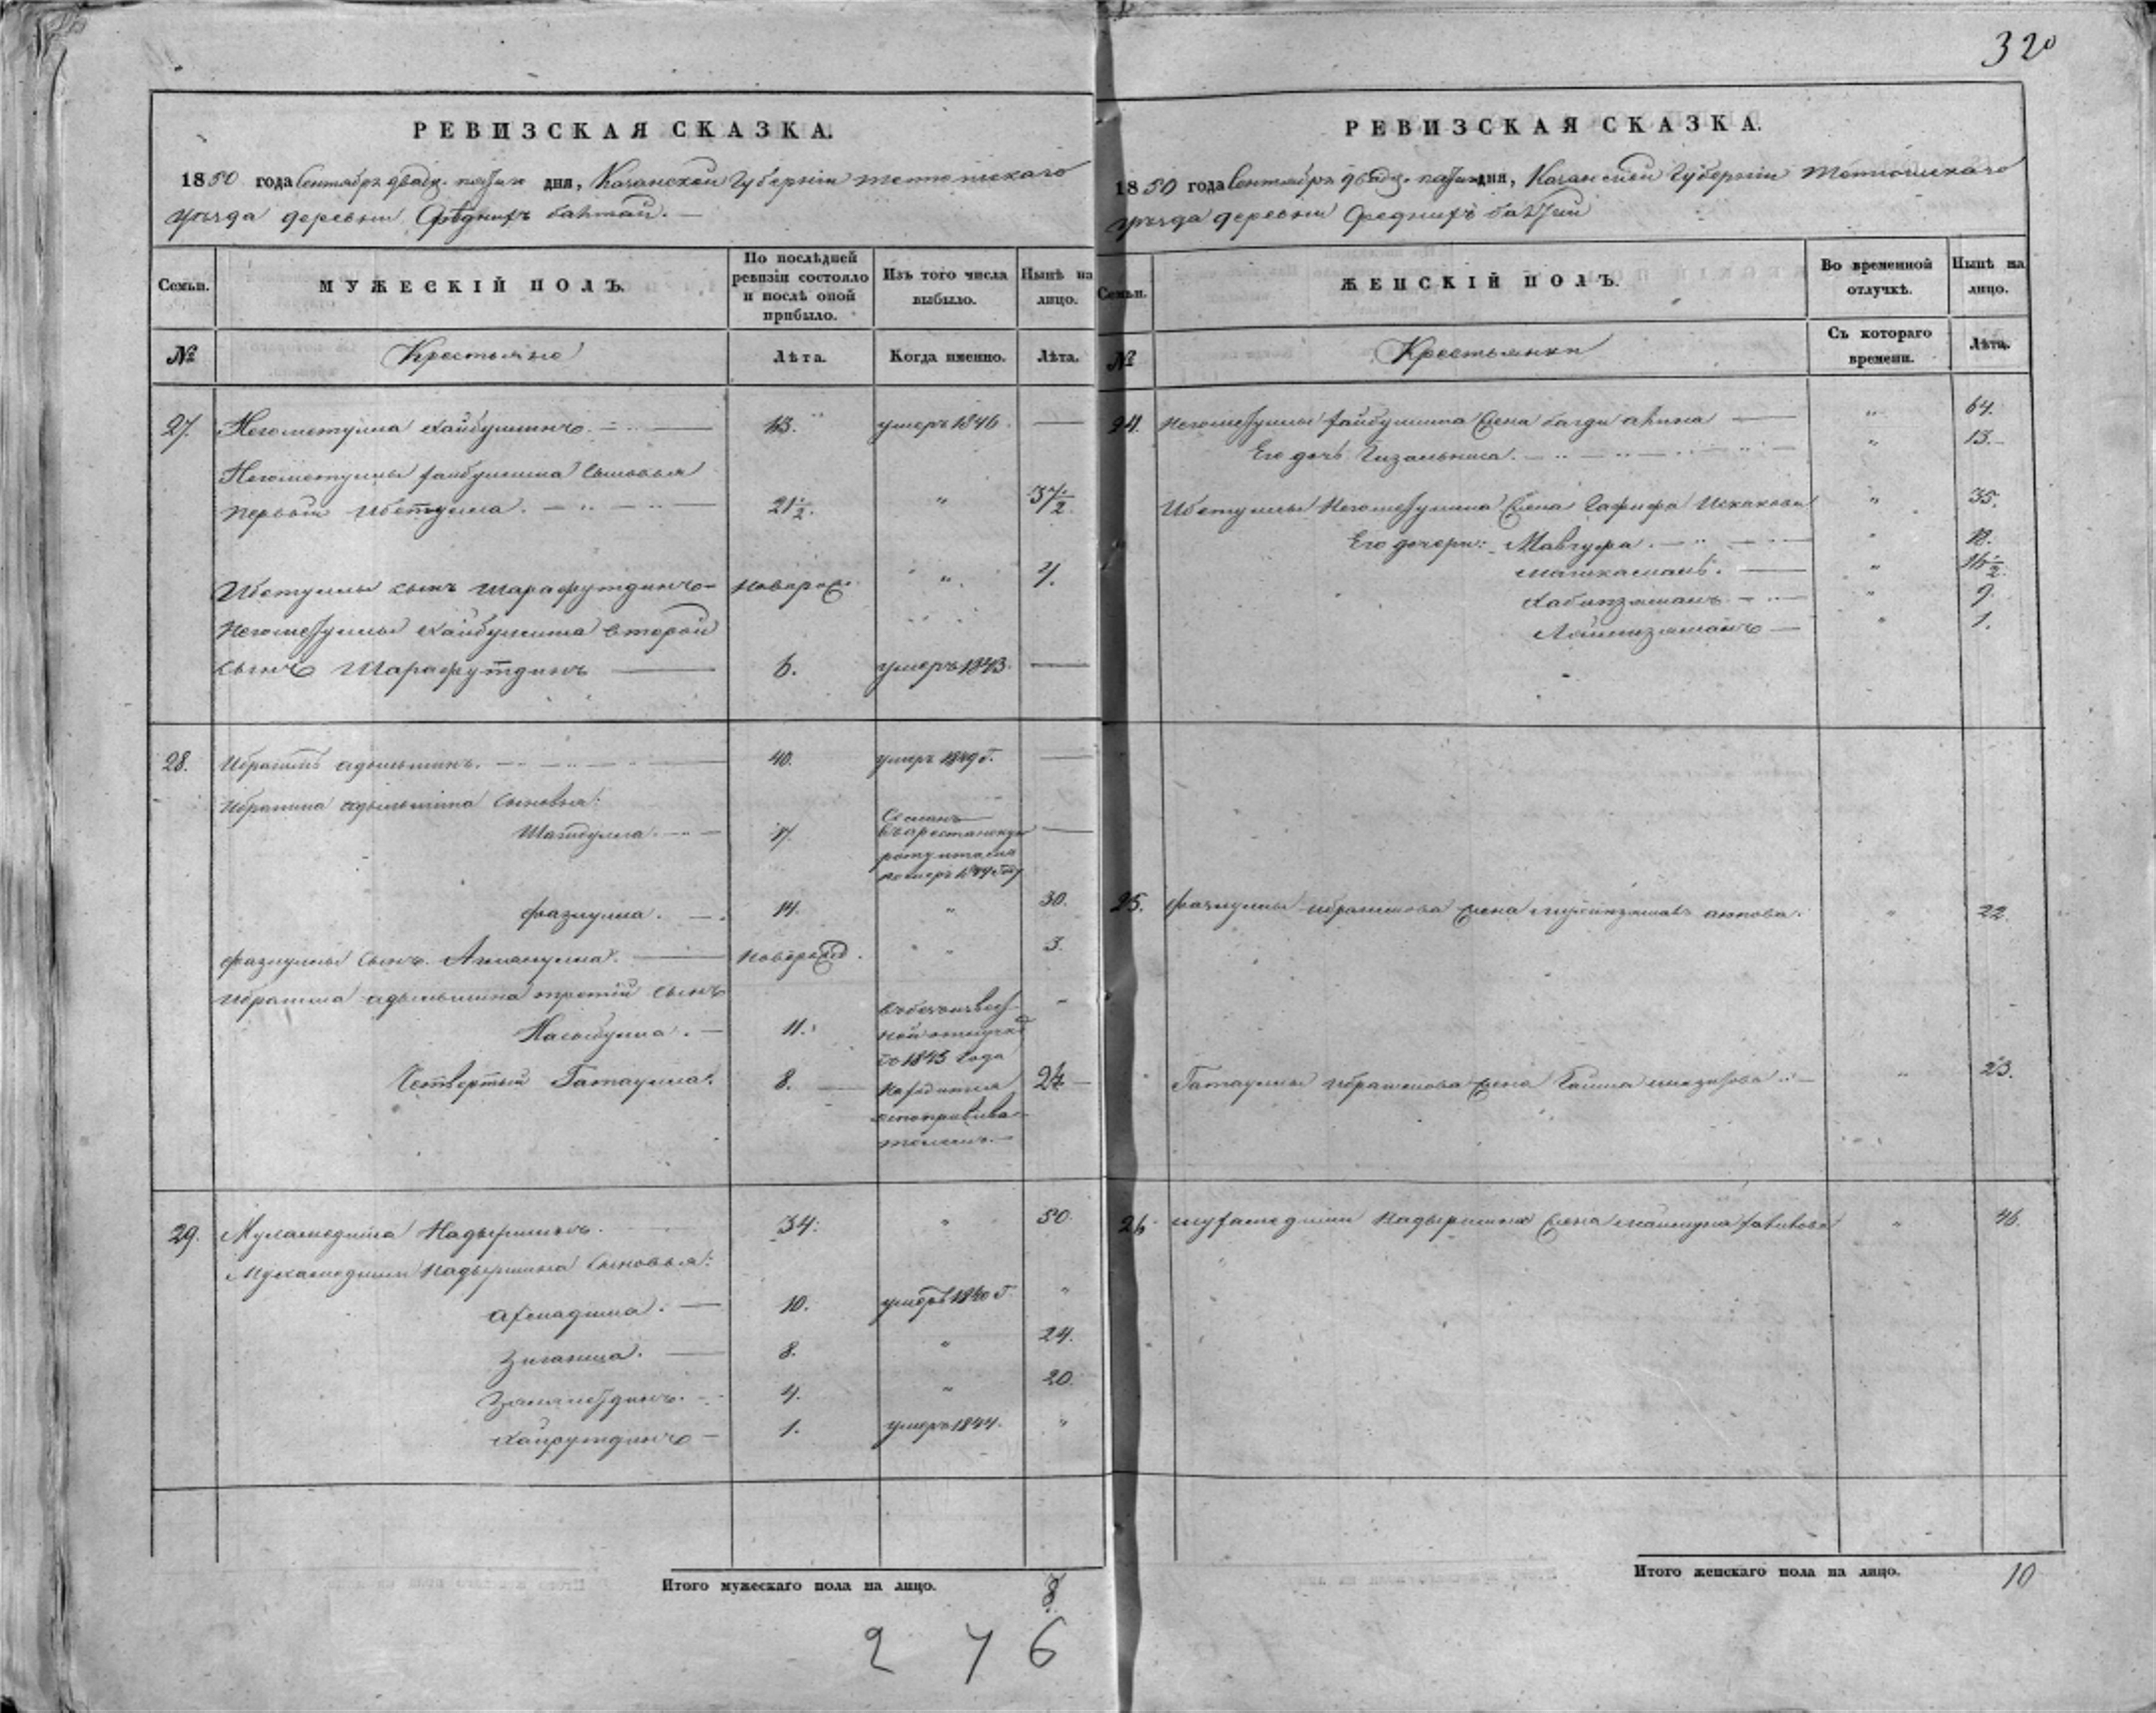 320
РЕВИЗСКАЯ СКАЗКА.
1850 года Сентября двадц. пятаго дня, Казанской Губернiи Тетюшскаго
уѣзда деревни Среднихъ Балтай.
Семьи. МУЖЕСКІЙ ПОЛЪ. По послѣдней ревизіи состояло и послѣ оной прибыло. Изъ того числа выбыло. Нынѣ на лицо.
№ Крестьяне Лѣта. Когда именно. Лѣта.
27. Негометулла Хайбуллинъ. 13. умеръ 1846. —
Негометуллы Хайбуллина сыновья
первой Ибетулла. 21½. " 37½.
Ибетуллы сынъ Шарафутдинъ новорож. " 7.
Негометуллы Хайбуллина второй
сынъ Шарафутдинъ 6. умеръ 1843. —
28. Ибрагимъ Адельшинъ. 40. умеръ 1849 г. —
Ибрагима Адельшина сыновья:
Шагидулла. —
Сосланъ
въ арестанскую
роту и тамъ
померъ
Фазлулла. 14. " 30.
Фазлуллы сынъ Аманулла. новорожд. " 3.
Ибрагима Адельшина третій сынъ
Насыбулла. 11. въ безъизвѣст-
ной отлучкѣ
съ 1843 года
Четвертый Гатаулла. 8. находится 24.
29. Мухамедша Надыршинъ. 34. " 50.
Мухамедши Надыршина сыновья:
Ахмадиша. 10. умеръ 1840 г. "
Зиганша. 8. " 24.
Замалетдинъ. 4. " 20.
Хайрутдинъ 1. умеръ 1844. "
Итого мужескаго пола на лицо. 8.
276
РЕВИЗСКАЯ СКАЗКА.
1850 года Сентября двадц. пятаго дня, Казанской Губернiи Тетюшскаго
уѣзда деревни Среднихъ Балтай
Семьи. ЖЕНСКІЙ ПОЛЪ. Во временной отлучкѣ. Нынѣ на лицо.
№ Крестьянки Съ котораго времени. Лѣта.
24. Негометуллы Хайбуллина жена " 64.
Его дочь " 13.
Ибетуллы Негометуллина жена Гафифа Исхакова " 35.
Его дочери: Мавгуфа. " 18.
" 16½.
Хабипзямалъ " 9.
" 1.
25. Фазлуллы Ибрагимова жена " 22.
Гатауллы Ибрагимова жена " 23.
26. Мухамедши Надыршина жена Маймуна " 46.
Итого женскаго пола на лицо. 10